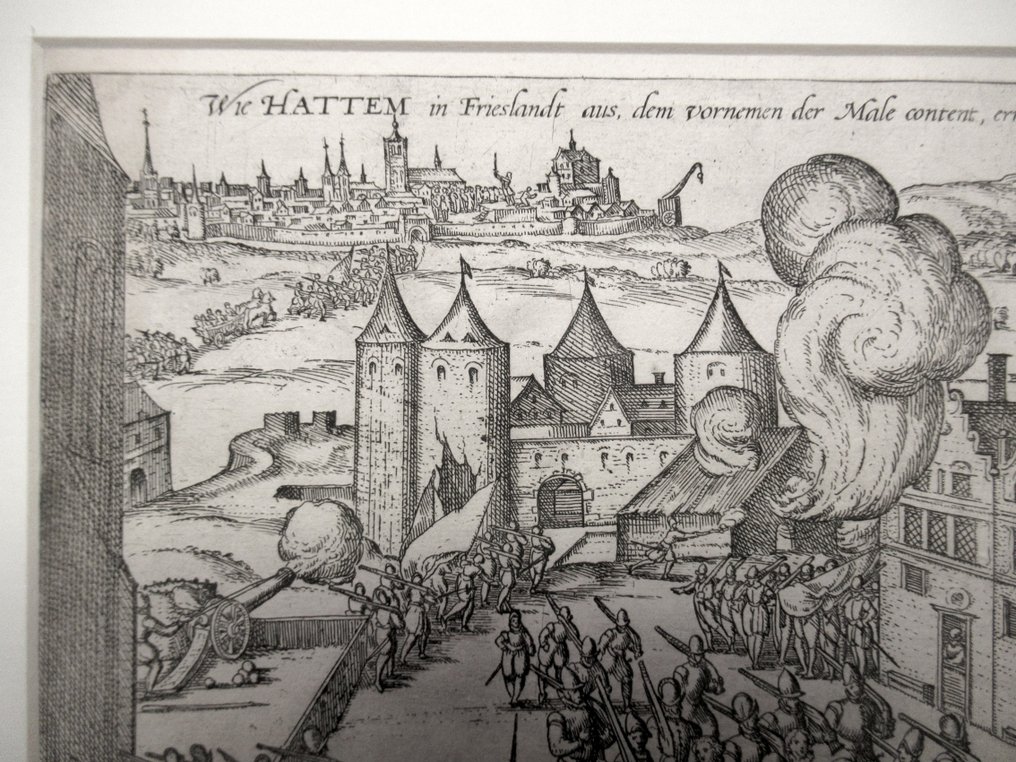 Wie HATTEM in Frieslandt aus, dem vornemen der Male content,